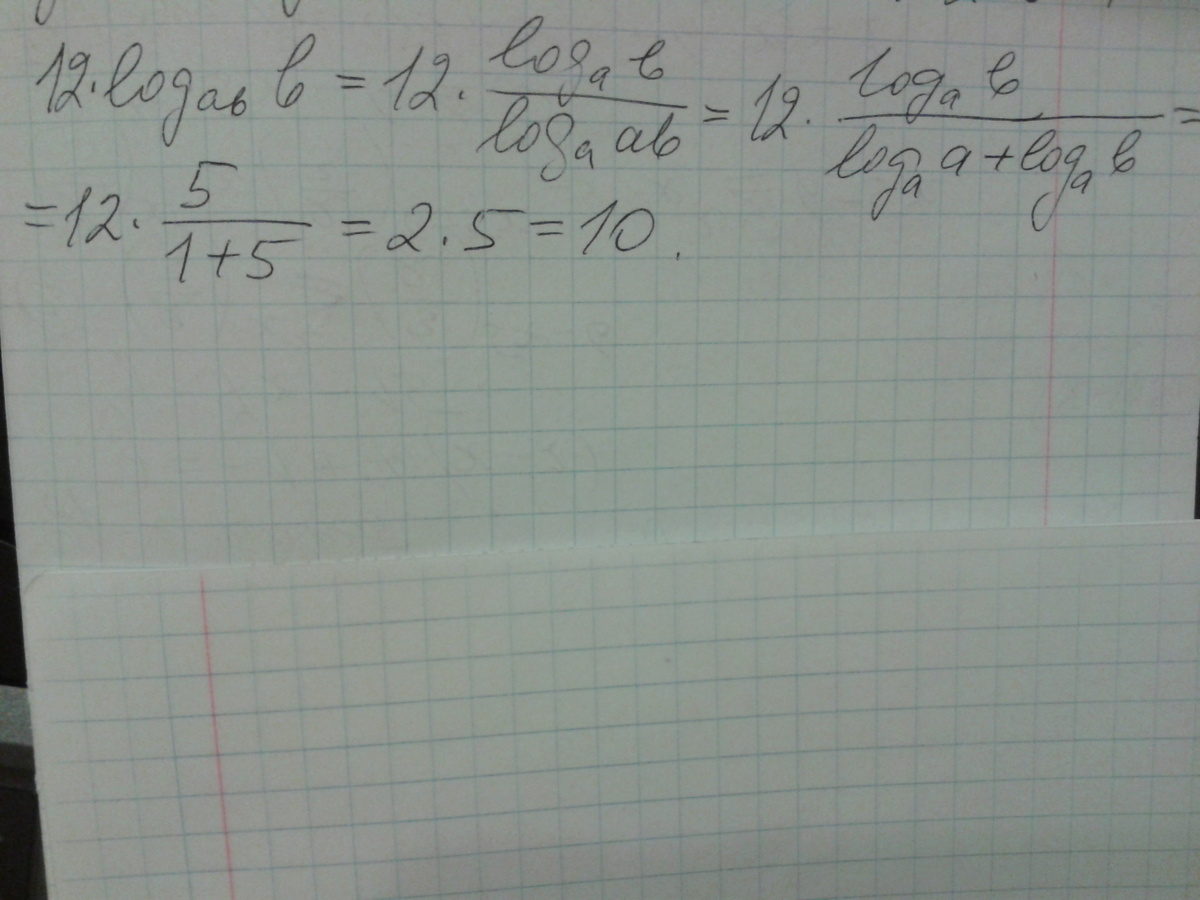 12·log_{ab} b = 12 · \frac{log_a b}{log_a ab} = 12 · \frac{log_a b}{log_a a + log_a b} =
= 12 · \frac{5}{1+5} = 2 · 5 = 10.